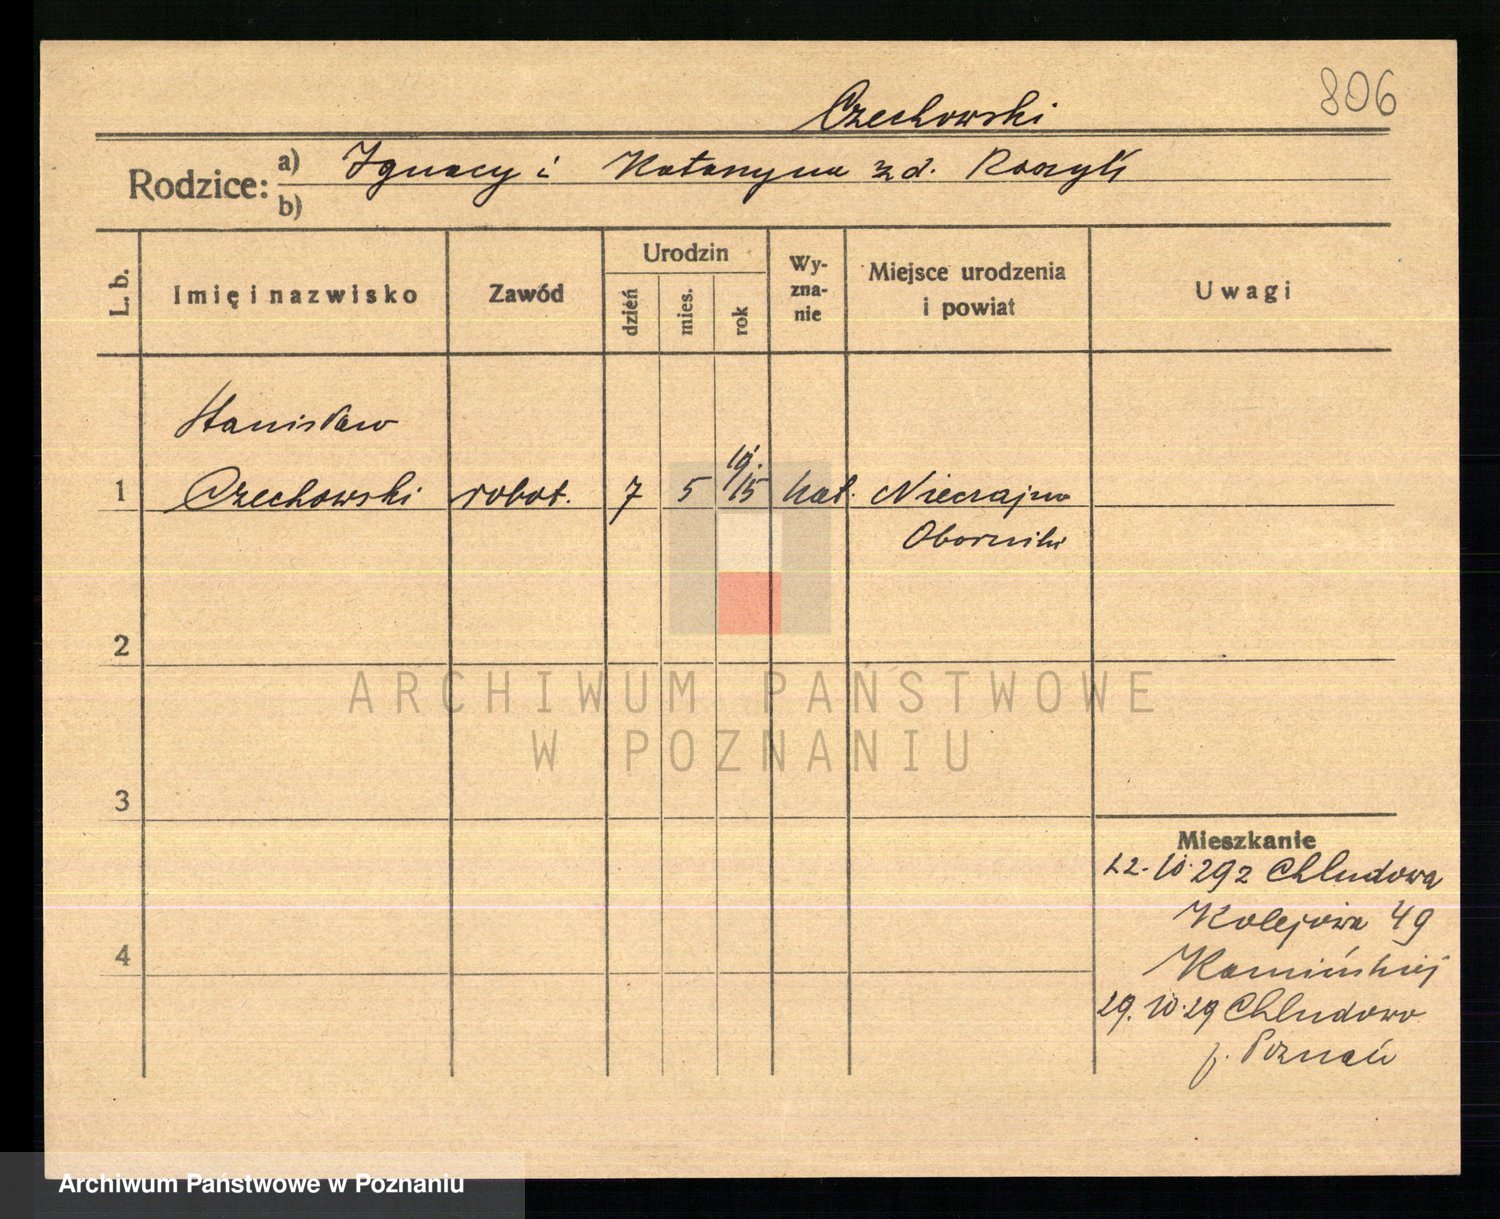 806
Czechowski
Rodzice: a) Ignacy i Katarzyna zd.
b)
L. b.
Imię i nazwisko
Zawód
Urodzin
dzień
mies.
rok
Wy-
zna-
nie
Miejsce urodzenia
i powiat
Uwagi
Stanisław
19.
1 Czechowski robot. 7 5 /15 kat.
Oborniki
2
ARCHIWUM PAŃSTWOWE
W POZNANIU
3
Mieszkanie
22.10.29 z Chludowa
Kolejowa 49
Kamińskiej
4
29.10.29 Chludowo
p. Poznań
Archiwum Państwowe w Poznaniu